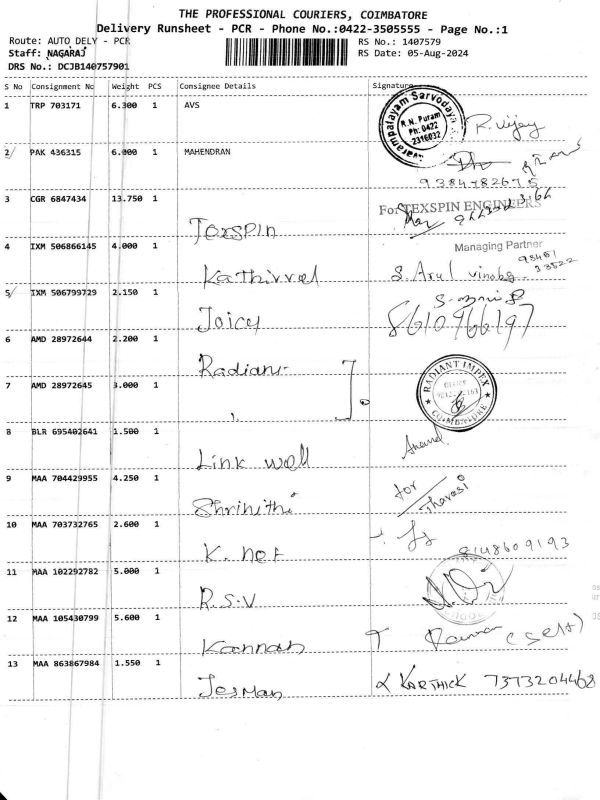 THE PROFESSIONAL COURIERS, COIMBATORE
Delivery Runsheet - PCR - Phone No.:0422-3505555 - Page No.:1
Route: AUTO DELY - PCR RS No.: 1407579
Staff: NAGARAJ RS Date: 05-Aug-2024
DRS No.: DCJB140757901
S No Consignment No Weight PCS Consignee Details Signature
1 TRP 703171 6.300 1 AVS R. Vijay
Sarvodaya
R.N. Puram
Ph: 0422
2316032
2 PAK 436315 6.000 1 MAHENDRAN
9384782675
3 CGR 6847434 13.750 1 Texspin For TEXSPIN ENGINEERS
Managing Partner
4 IXM 506866145 4.000 1 Kathirvel S. Arul
5 IXM 506799729 2.150 1 Joicy 8610966197
6 AMD 28972644 2.200 1 Radiant
7 AMD 28972645 3.000 1
RADIANT IMPEX
COIMBATORE
8 BLR 695402641 1.500 1 Link well Anand
9 MAA 704429955 4.250 1 Shrinithi for Thavasi
10 MAA 703732765 2.600 1 K. net 8148609193
11 MAA 102292782 5.000 1 R.S.V
12 MAA 105430799 5.600 1 Kannan (Self)
13 MAA 863867984 1.550 1 Jesman KARTHICK 7373204468